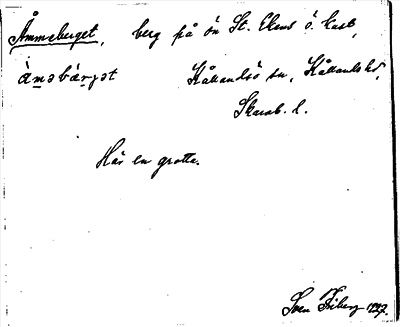 Åmmeberget, berg på ön St. Ekens ö. kust,
àməbæ̀rjət Kållandsö sn, Kållands hd,
Skarab. l.
Här en grotta.
Sven Friberg 1927.